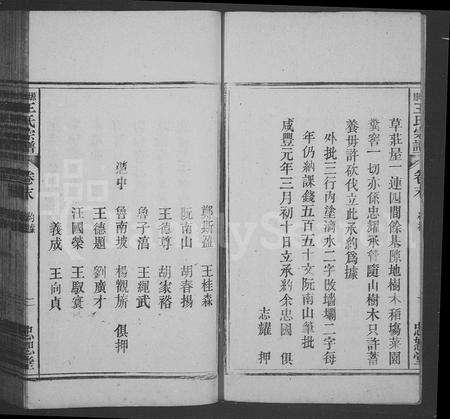 草莊屋一連四間餘基隙地樹木稻塲菜園
糞窖一切亦係忠耀承管隨山樹木只許蓄
養毋許砍伐立此承約爲據
外批三行內塗滴水二字改墻塌二字每
年仍納課錢五百五十文阮南山筆批
咸豐元年三月初十日立承約余忠國 俱
志耀 押
鄭斯盈 王桂森
阮南山 胡春揚
王德尊 胡家裕
魯子滔 王繩武
憑中 魯南坡 楊觀旂 俱押
王德題 劉廣才
汪國榮 王馭寰
義成 王向貞
王氏宗譜
卷末
王氏宗譜 卷末